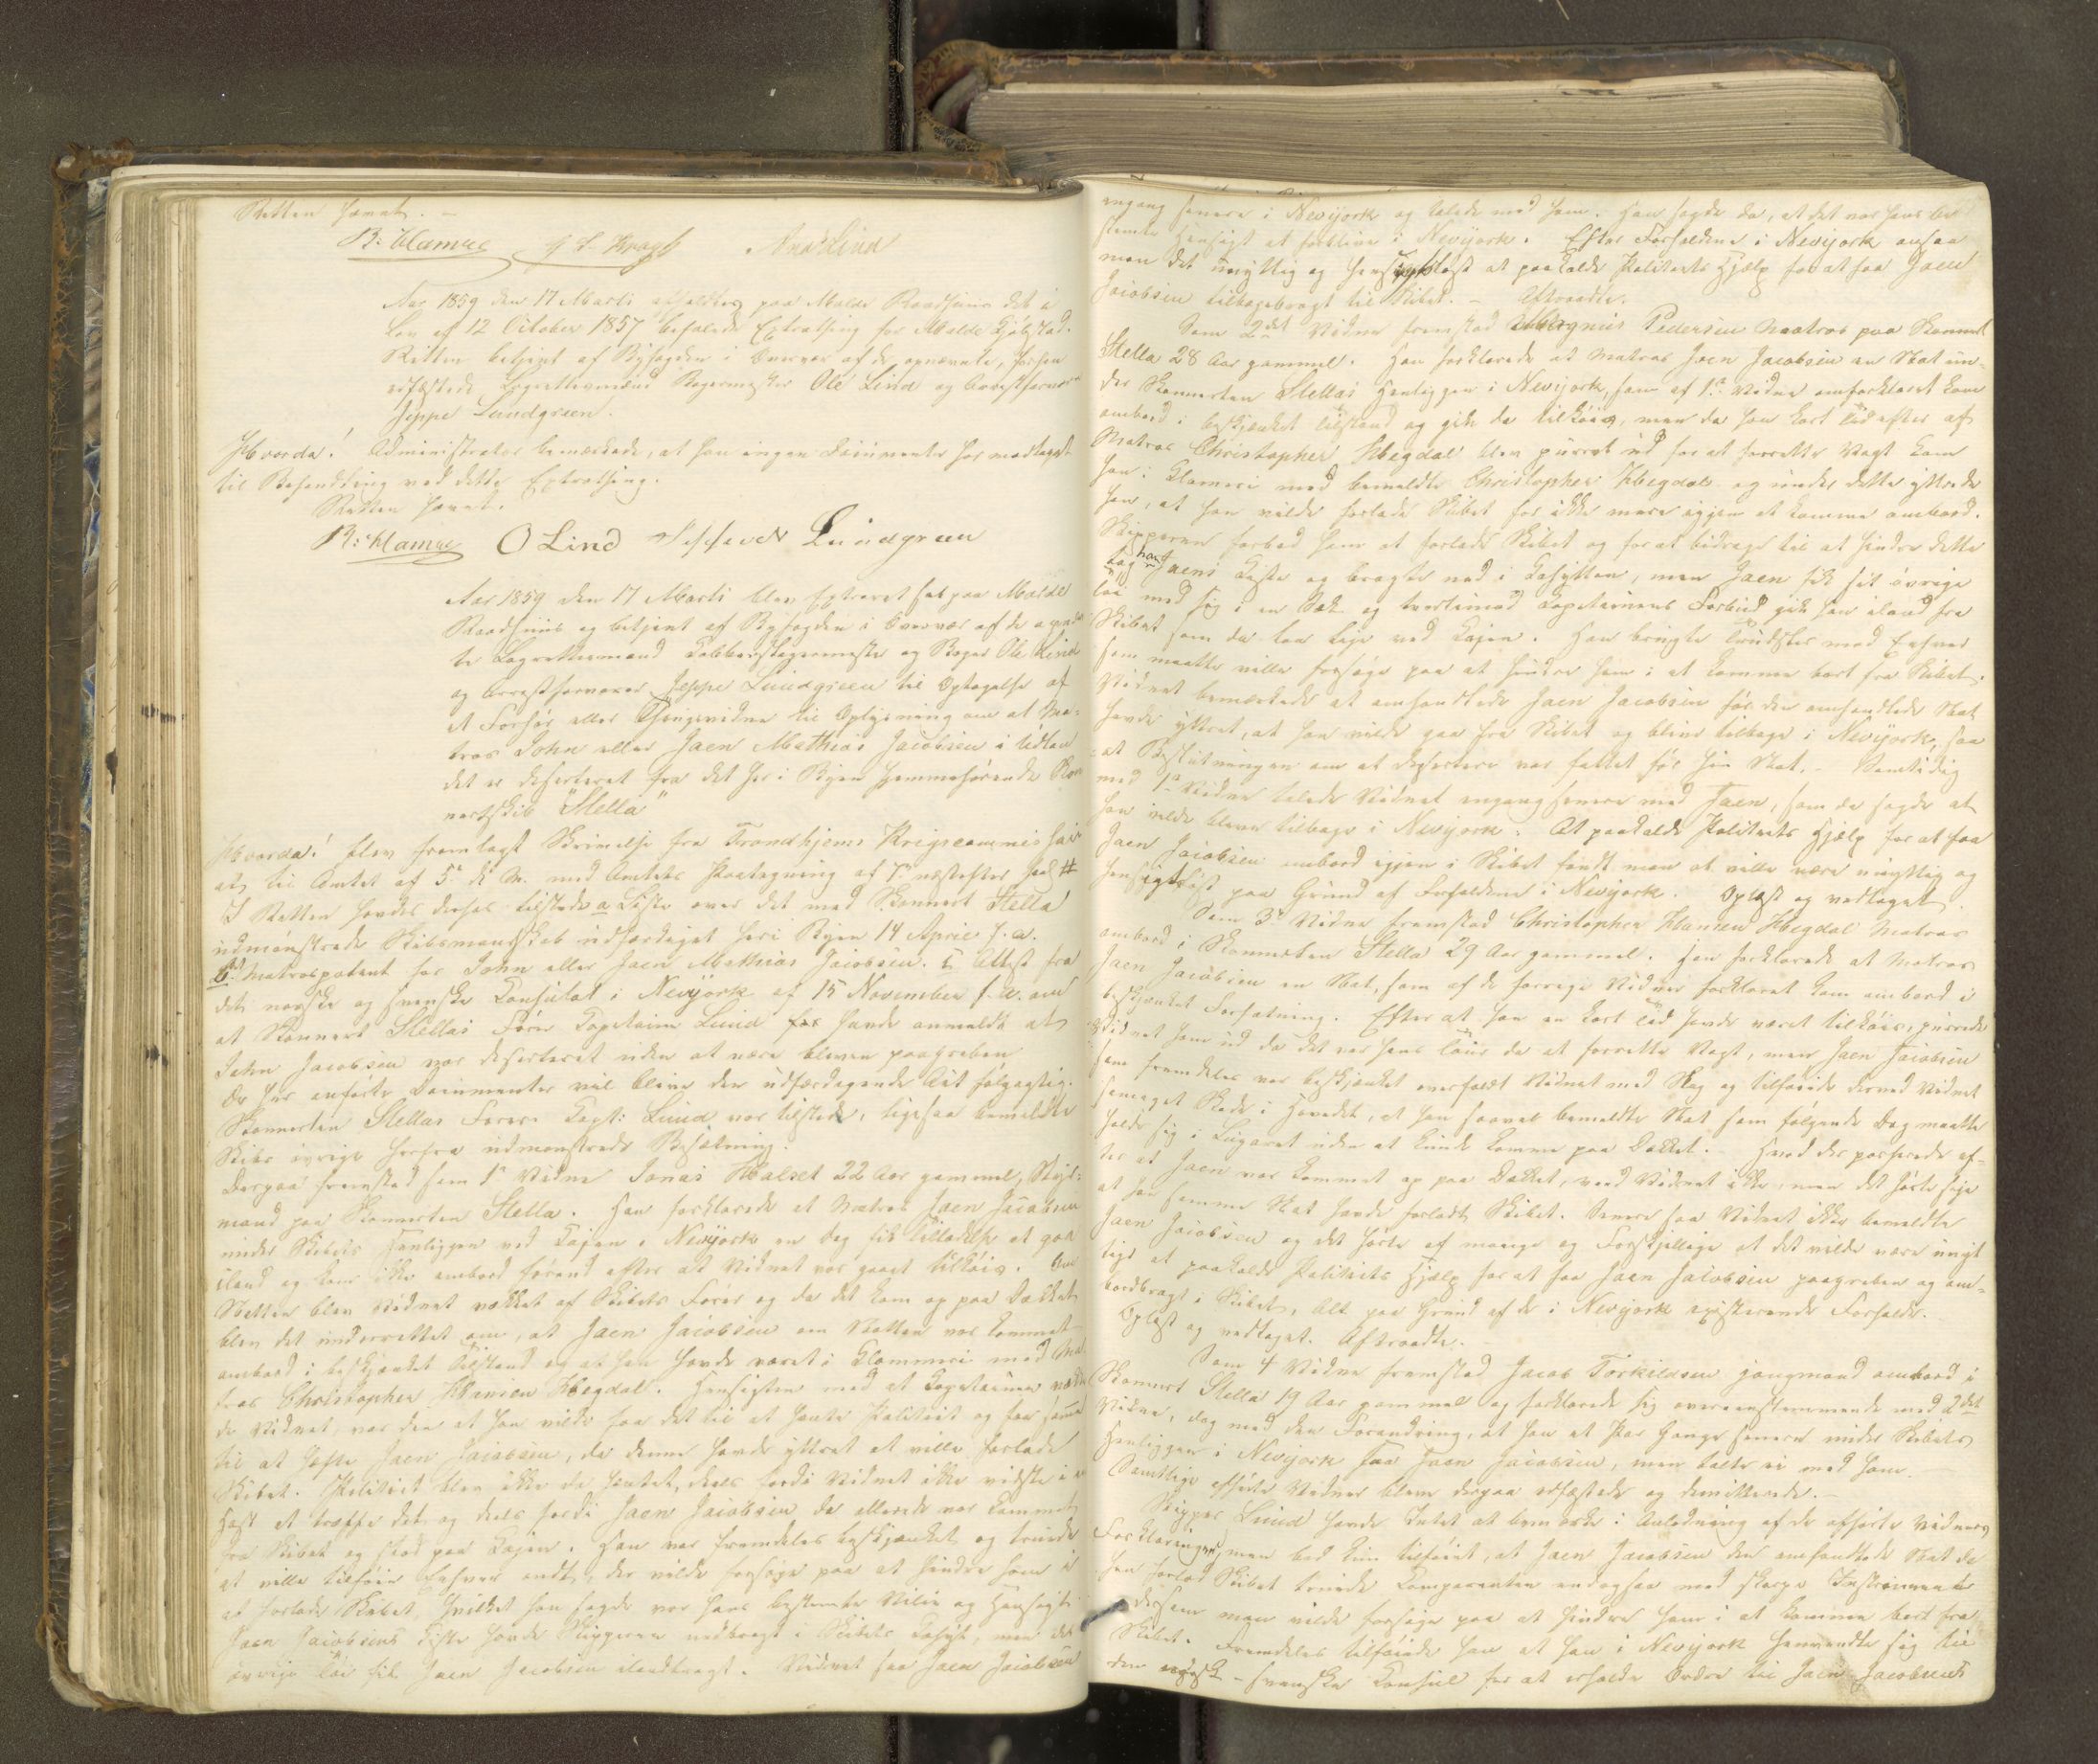 Retten hævet. –
R: Hamre J L Kragh And: Lind
Aar 1859 den 17 Marti afholdtes paa Molde Raadhuus det i
Lov af 12 October 1857 befalede Extrathing for Molde Kjøbstad.
Retten betjent af Byfogden i Overvær af de opnævnte, forhen
edfæstede Lagrettesmænd Bagermester Ole Lind og Arrestforvarer
Jeppe Lundgreen.
Hvorda! Administrator bemærkede, at han ingen Documenter har modtaget
til Behandling ved dette Extrathing.
Retten hævet.
R: Hamre O Lind Jeppe Lundgreen
Aar 1859 den 17 Marti blev Extraret sat paa Molde
Raadhuus og betjent af Byfogden i Overvær af de opnævn
te Lagrettesmænd Kobberslagermester og Bager Ole Lind
og Arrestforvarer Jeppe Lundgreen til Optagelse af
et Forhør eller Thingsvidne til Oplysning om at Ma-
tros John eller Jaen Mathias Jacobsen i Udlan
det er deserteret fra det her i Byen hjemmehørende Skon
nertskib "Stella"
Hvorda! blev fremlagt Skrivelse fra Trondhjems Krigscommissari
at til Amtet af 5te d. M. med Amtets Paategning af 7de næstefter
I Retten havdes derhos tilstede a Liste over det med Skonnert Stella
udmønstrede Skibsmandskab udfærdiget her i Byen 14 April f. a.
b. Matrospatent for John eller Jaen Mathias Jacobsen. c, Attest fra
det norske og svenske Consulat i Newyork af 15 November f. a. om
at Skonnert Stellas Fører Capitaine Lund har havde anmeldt at
John Jacobsen var deserteret uden at være bleven paagreben
De her anførte Documenter vil blive den udfærdigende Act følgagtig.
Skonnerten Stellas Fører Capt: Lund var tilstede, ligesaa bemeldte
Skibs øvrige herfra udmønstrede Besætning.
Derpaa fremstod som 1te Vidne Jonas Halset 22 Aar gammel, Styr-
mand paa Skonnerten Stella. Han forklarede at Matros Jaen Jacobsen
under Skibets Henliggen ved Kajen i Newyork en Dag fik Tilladelse at gaa
iland og kom ikke ombord førend efter at Vidnet var gaaet tilkøis. Om
Natten blev Vidnet vækket af Skibets Fører og da det kom op paa Dækket
blev det underrettet om, at Jaen Jacobsen om Natten var kommet
ombord i beskjænket Tilstand og at han havde været i Klammeri med Ma
tros Christopher Hansen Hegdal. Hensigten med at Capitainen vække
de Vidnet, var den at han vilde faa det til at hente Politiet og faa samme
til at hefte Jaen Jacobsen, da denne havde yttret at ville forlade
Skibet. Politiet blev ikke da hentet, deels fordi Vidnet ikke vidste i
Hast at træffe det og deels fordi Jaen Jacobsen da allerede var kommet
fra Skibet og stod paa Kajen. Han var fremdeles beskjænket og truede
at ville tilføie Enhver ondt, der vilde forsøge paa at hindre ham i
at forlade Skibet, hvilket han sagde var hans bestemte Villie og Hensigt.
Jaen Jacobsens Kiste havde Skipperen nedbragt i Skibets Kahyt, men det
øvrige Tøi fik Jaen Jacobsen ilandbragt. Vidnet saa Jaen Jacobsen
engang senere i Newyork og talede med ham. Han sagde da, at det var hans be-
stemte Hensigt at forblive i Newyork. Efter Forholdene i Newyork ansaa
man det unyttig og hensigtsløst at paakalde Politiets Hjælp for at faa Jaen
Jacobsen tilbagebragt til Skibet. – Aftraadte.
Som 2det Vidne fremstod Magnus Pedersen Matros paa Skonnert
Stella 28 Aar gammel. Han forklarede at Matros Jaen Jacobsen en Nat un-
der Skonnerten Stellas Henliggen i Newyork, som af 1te Vidne omforklaret kom
ombord i beskjænket Tilstand og gik da tilkøis, men da han kort Tid efter af
Matros Christopher Hegdal blev purret ud for at forrette Vagt kom
han i Klameri med bemeldte Christopher Hegdal og under dette yttrede
han, at han vilde forlade Skibet for ikke mere igjen at komme ombord.
Skipperen forbød ham at forlade Skibet og for at bidrage til at hindre dette
tog han Jaens Kiste og bragte ned i Kahytten, men Jaen fik sit øvrige
Tøi med sig i en Sæk og tvertimod Capitainens Forbud gik han iland fra
Skibet som da laa lige ved Kajen. Han brugte Trudsler mod Enhver
som maatte ville forsøge paa at hindre ham i at komme bort fra Skibet.
Vidnet bemærkede at omhandlede Jaen Jacobsen før den omhandlede Nat
havde yttret, at han vilde gaa fra Skibet og blive tilbage i Newyork, saa
at Beslutningen om at desertere var fattet før hin Nat. – Samtidig
med 1te Vidne talede Vidnet engang senere med Jaen, som da sagde at
han vilde bleve tilbage i Newyork. At paakalde Politiets Hjælp for at faa
Jaen Jacobsen ombord igjen i Skibet fandt man at ville være unyttig og
hensigtsløst paa Grund af Forholdene i Newyork. Oplæst og vedtaget.
Som 3de Vidne fremstod Christopher Hansen Hegdal Matros
ombord i Skonnerten Stella 29 Aar gammel. Han forklarede at Matros
Jaen Jacobsen en Nat, som af de forrige Vidner forklaret kom ombord i
beskjænket Forfatning. Efter at han en kort Tid havde været tilkøis, purrede
Vidnet ham ud da det var hans Tour da at forrette Vagt, men Jaen Jacobsen
som fremdeles var beskjænket overfaldt Vidnet med Slag og tilføiede derved Vidnet
saameget Skade i Hovedet, at han saavel bemeldte Nat som følgende Dag maatte
holde sig i Lugaret uden at kunde komme paa Dækket. Hvad der passerede ef-
ter at Jaen var kommet op paa Dækket, veed Vidnet ikke, men det hørte sige
at han samme Nat havde forladt Skibet. Senere saa Vidnet ikke bemeldte
Jaen Jacobsen og det hørte af mange og Forskjellige at det vilde være unyt
tigt at paakalde Politiets Hjælp for at faa Jaen Jacobsen paagreben og om-
bordbragt i Skibet, Alt paa Grund af de i Newyork existerende Forholde.
Oplæst og vedtaget. Aftraadte. –
Som 4 Vidne fremstod Jacob Torkildsen Jungmand ombord i
Skonnert Stella 19 Aar gammel og forklarede sig overeensstemmende med 2det
Vidne, dog med den Forandring, at han et Par Gange senere under Skibets
Henliggen i Newyork saa Jaen Jacobsen, men talte ei med ham.
Samtlige afhørte Vidner bleve derpaa edfæstede og dimitterede. –
Skipper Lund havde Intet at bemærke i Anledning af de afhørte Vidners
Forklaringer, men bad kun tilføiet, at Jaen Jacobsen den omhandlede Nat da
han forlod Skibet truede Comparenten endogsaa med skarpe Instrumenter
dersom man vilde forsøge paa at hindre ham i at komme bort fra
Skibet. Fremdeles tilføiede han at han i Newyork henvendte sig til
den norsk-svenske Consul for at erholde Ordre til Jaen Jacobsens